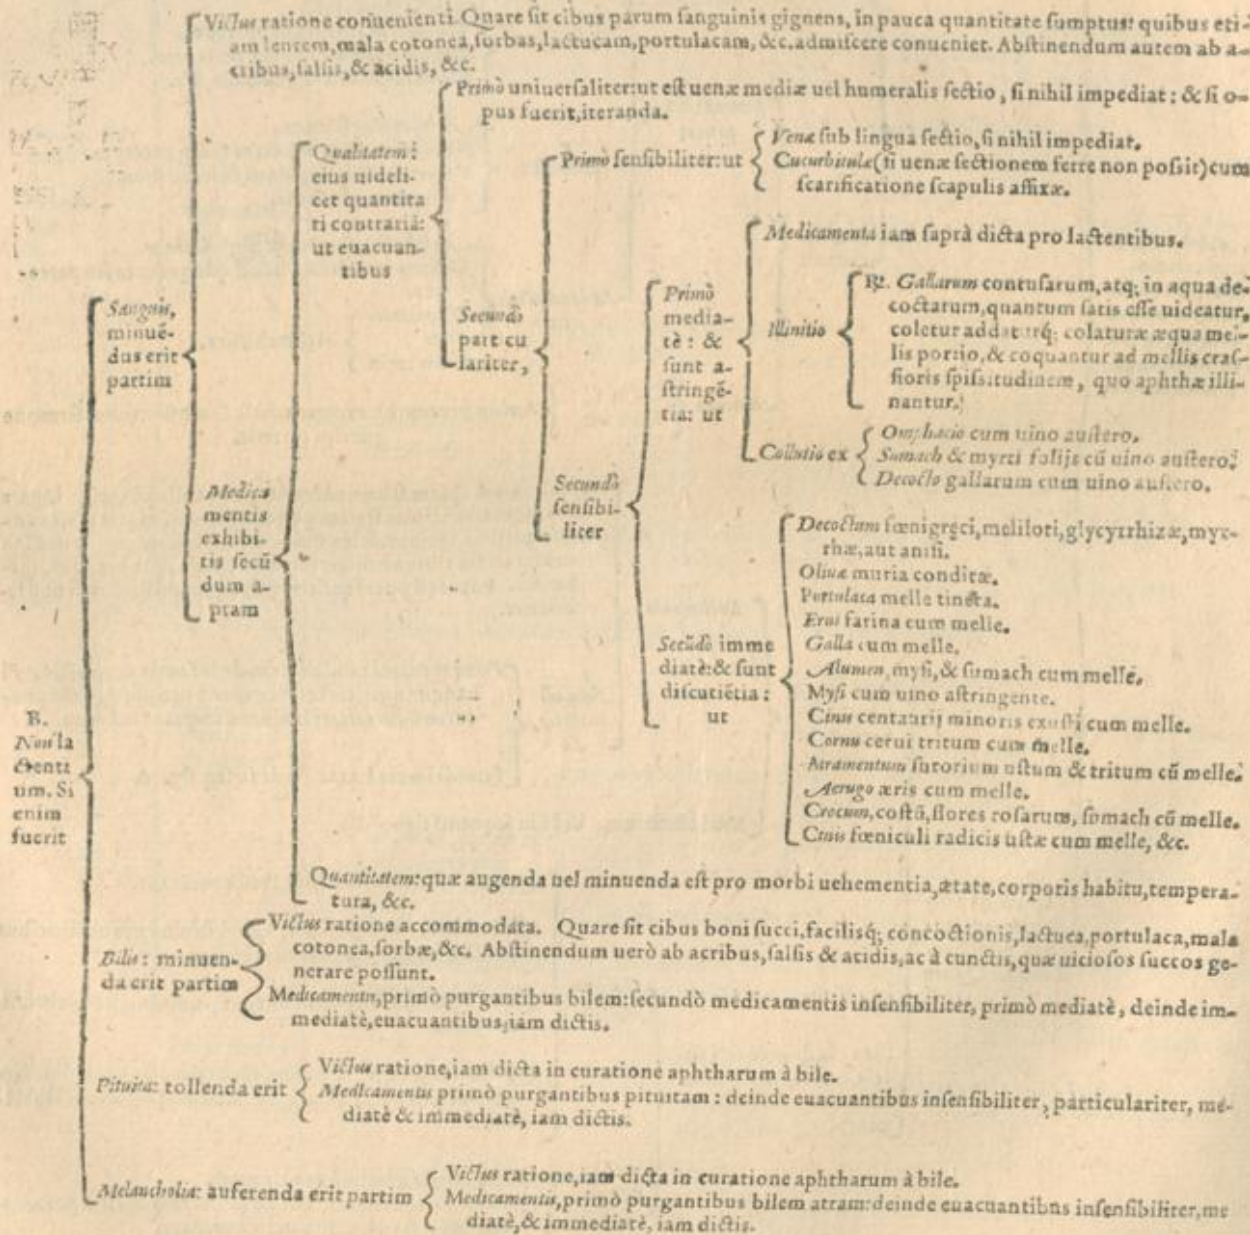 Victus ratione conuenienti. Quare sit cibus parum sanguinis gignens, in pauca quantitate sumptus: quibus eti-
am lentem, mala cotonea, sorbas, lactucam, portulacam, &c. admiscere conueniet. Abstinendum autem ab a-
cribus, salsis, & acidis, &c.
Primò uniuersaliter: ut est uenæ mediæ uel humeralis sectio, si nihil impediat: & si o-
pus fuerit, iteranda.
Qualitatem:
eius uideli-
cet quantita
ti contrariã:
ut euacuan-
tibus
Primò sensibiliter: ut
Venæ sub lingua sectio, si nihil impediat.
Cucurbitulæ (si uenæ sectionem ferre non possit) cum
scarificatione scapulis affixæ.
Medicamenta iam suprà dicta pro lactentibus.
Sanguis,
minuẽ-
dus erit
partim
Secundò
particu
lariter,
Primò
media-
tè: &
sunt a-
stringẽ-
tia: ut
Illinitio
℞. Gallarum contusarum, atq; in aqua de-
coctarum, quantum satis esse uideatur,
coletur addaturq; colaturæ æqua mel-
lis portio, & coquantur ad mellis cras-
sioris spissitudinem, quo aphthæ illi-
nantur.
Collutio ex
Omphacio cum uino austero.
Sumach & myrti folijs cũ uino austero.
Decocto gallarum cum uino austero.
Medica
mentis
exhibi-
tis secũ
dum a-
ptam
Secundò
sensibi-
liter
Secũdò imme
diatè: & sunt
discutiẽtia:
ut
Decoctum fœnigręci, meliloti, glycyrrhizæ, myr-
rhæ, aut anisi.
Oliuæ muria conditæ.
Portulaca melle tincta.
Erui farina cum melle.
Galla cum melle.
Alumen, mysi, & sumach cum melle.
Mysi cum uino astringente.
Cinis centaurij minoris exusti cum melle.
Cornu cerui tritum cum melle.
Atramentum sutorium ustum & tritum cũ melle.
Aerugo æris cum melle.
Crocum, costũ, flores rosarum, somach cũ melle.
Cinis fœniculi radicis ustæ cum melle, &c.
B.
Non la
ctenti
um. Si
enim
fuerit
Quantitatem: quæ augenda uel minuenda est pro morbi uehementia, ætate, corporis habitu, tempera-
tura, &c.
Bilis: minuen-
da erit partim
Victus ratione accommodata. Quare sit cibus boni succi, facilisq; concoctionis, lactuca, portulaca, mala
cotonea, sorbæ, &c. Abstinendum uerò ab acribus, salsis & acidis, ac à cunctis, quæ uiciosos succos ge-
nerare possunt.
Medicamentis, primò purgantibus bilem: secundò medicamentis insensibiliter, primò mediatè, deinde im-
mediatè, euacuantibus, iam dictis.
Pituita: tollenda erit
Victus ratione, iam dicta in curatione aphtharum à bile.
Medicamentis primò purgantibus pituitam: deinde euacuantibus insensibiliter, particulariter, me-
diatè & immediatè, iam dictis.
Melancholia: auferenda erit partim
Victus ratione, iam dicta in curatione aphtharum à bile.
Medicamentis, primò purgantibus bilem atram: deinde euacuantibus insensibiliter, me
diatè, & immediatè, iam dictis.